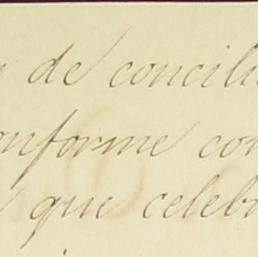 de concili
onforme con
que celebr